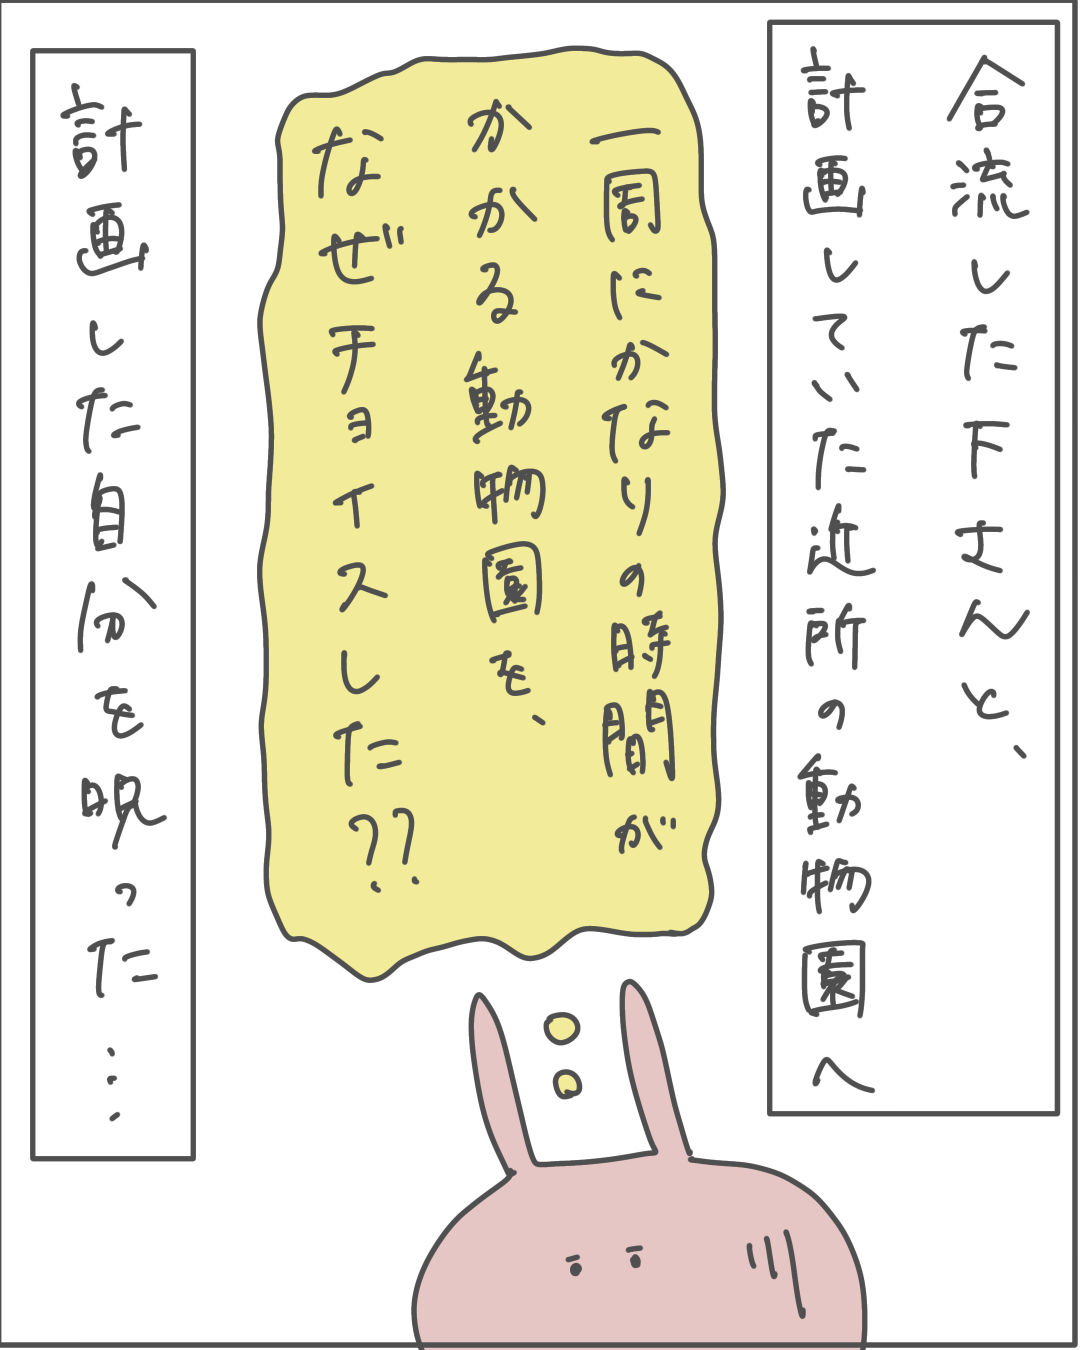 合流した下さんと、
計画していた近所の動物園へ
一周にかなりの時間が
かかる動物園を、
なぜチョイスした??
計画した自分を呪った…